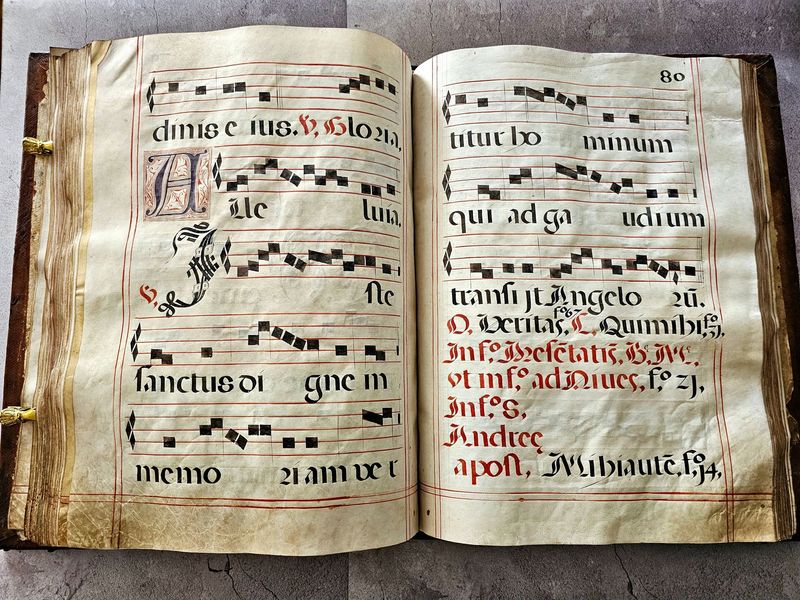 dinis e ius. V. Gloria.
Alle luia.
V. Iste
sanctus di gne in
memo riam ver
80
titur ho minum
qui ad ga udium
transi jt Angelo rū.
O, Veritas, fº C, Quimihi, fº
Inf.º Presētatiš,
vt inf.º ad Niues, f.º zj,
Inf.º S,
Andreę
apost, Mihiautē, f.º j4,